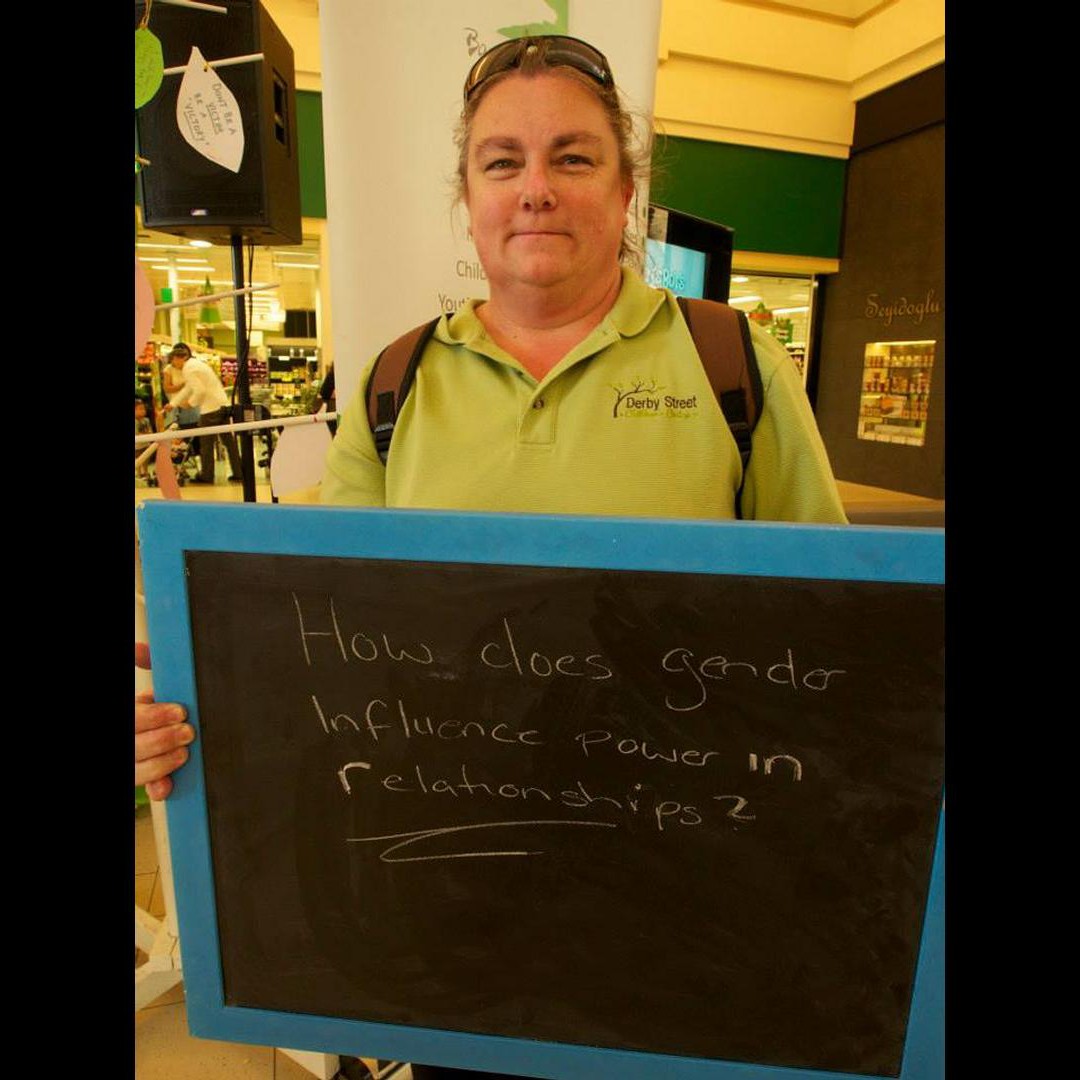 DON'T BE A
VICTIM
BE A
"VICTORY"
Ba
Child
Yout
Seyidoglu
Derby Street
Children's Centre
How does gender
Influence power in
relationships?